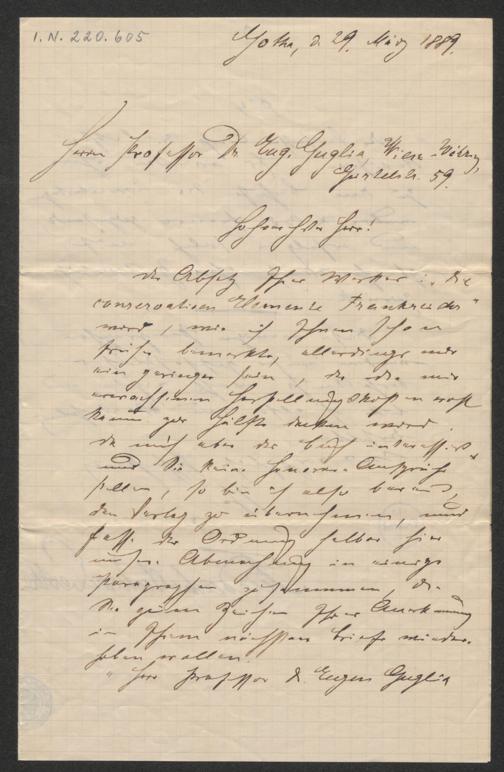 I.N. 220.605
Gotha, d. 29. März 1889.
Herrn Professor Dr. Eug. Guglia, Wien-Währing,
Gürtelstr. 59.
Hochverehrter Herr!
Der Absatz Ihres Werkes: „Die
conservativen Elemente Frankreichs"
wird, wie ich Ihnen schon
früher bemerkte, allerdings nur
ein geringer sein, der die mir
erwachsenen Herstellungskosten wohl
kaum zur Hälfte decken wird.
Da mich aber das Buch interessirt
und Sie keine Honorar-Ansprüche
stellen, so bin ich also bereit,
den Verlag zu übernehmen, und
fasse der Ordnung halber hier
unsere Abmachung in einige
Paragraphen zusammen, die
Sie zum Zeichen Ihrer Anerkennung
in Ihrem nächsten Briefe wieder-
holen wollen.
" Herr Professor Dr. Eugen Guglia